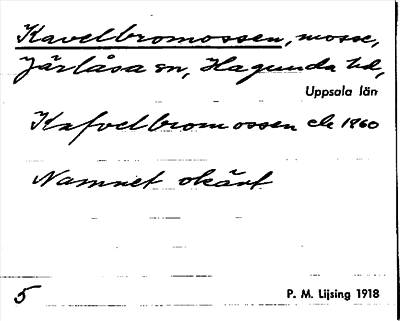 Kavelbromossen, mosse,
Järlåsa sn, Hagunda hd,
Uppsala län
Kafvelbromossen ek 1860
Namnet okänt
5
P. M. Lijsing 1918